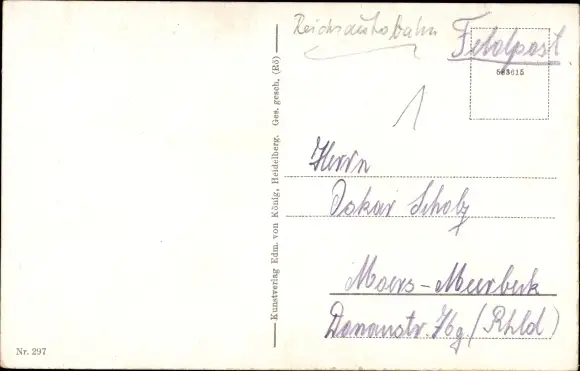 Reichsautobahn
Feldpost
583615
1
Herrn
Oskar Scholz
Moers-Meerbeck
Donaustr. 76g. (Rhld)
Kunstverlag Edm. von König, Heidelberg. Ges. gesch. (Rö)
Nr. 297